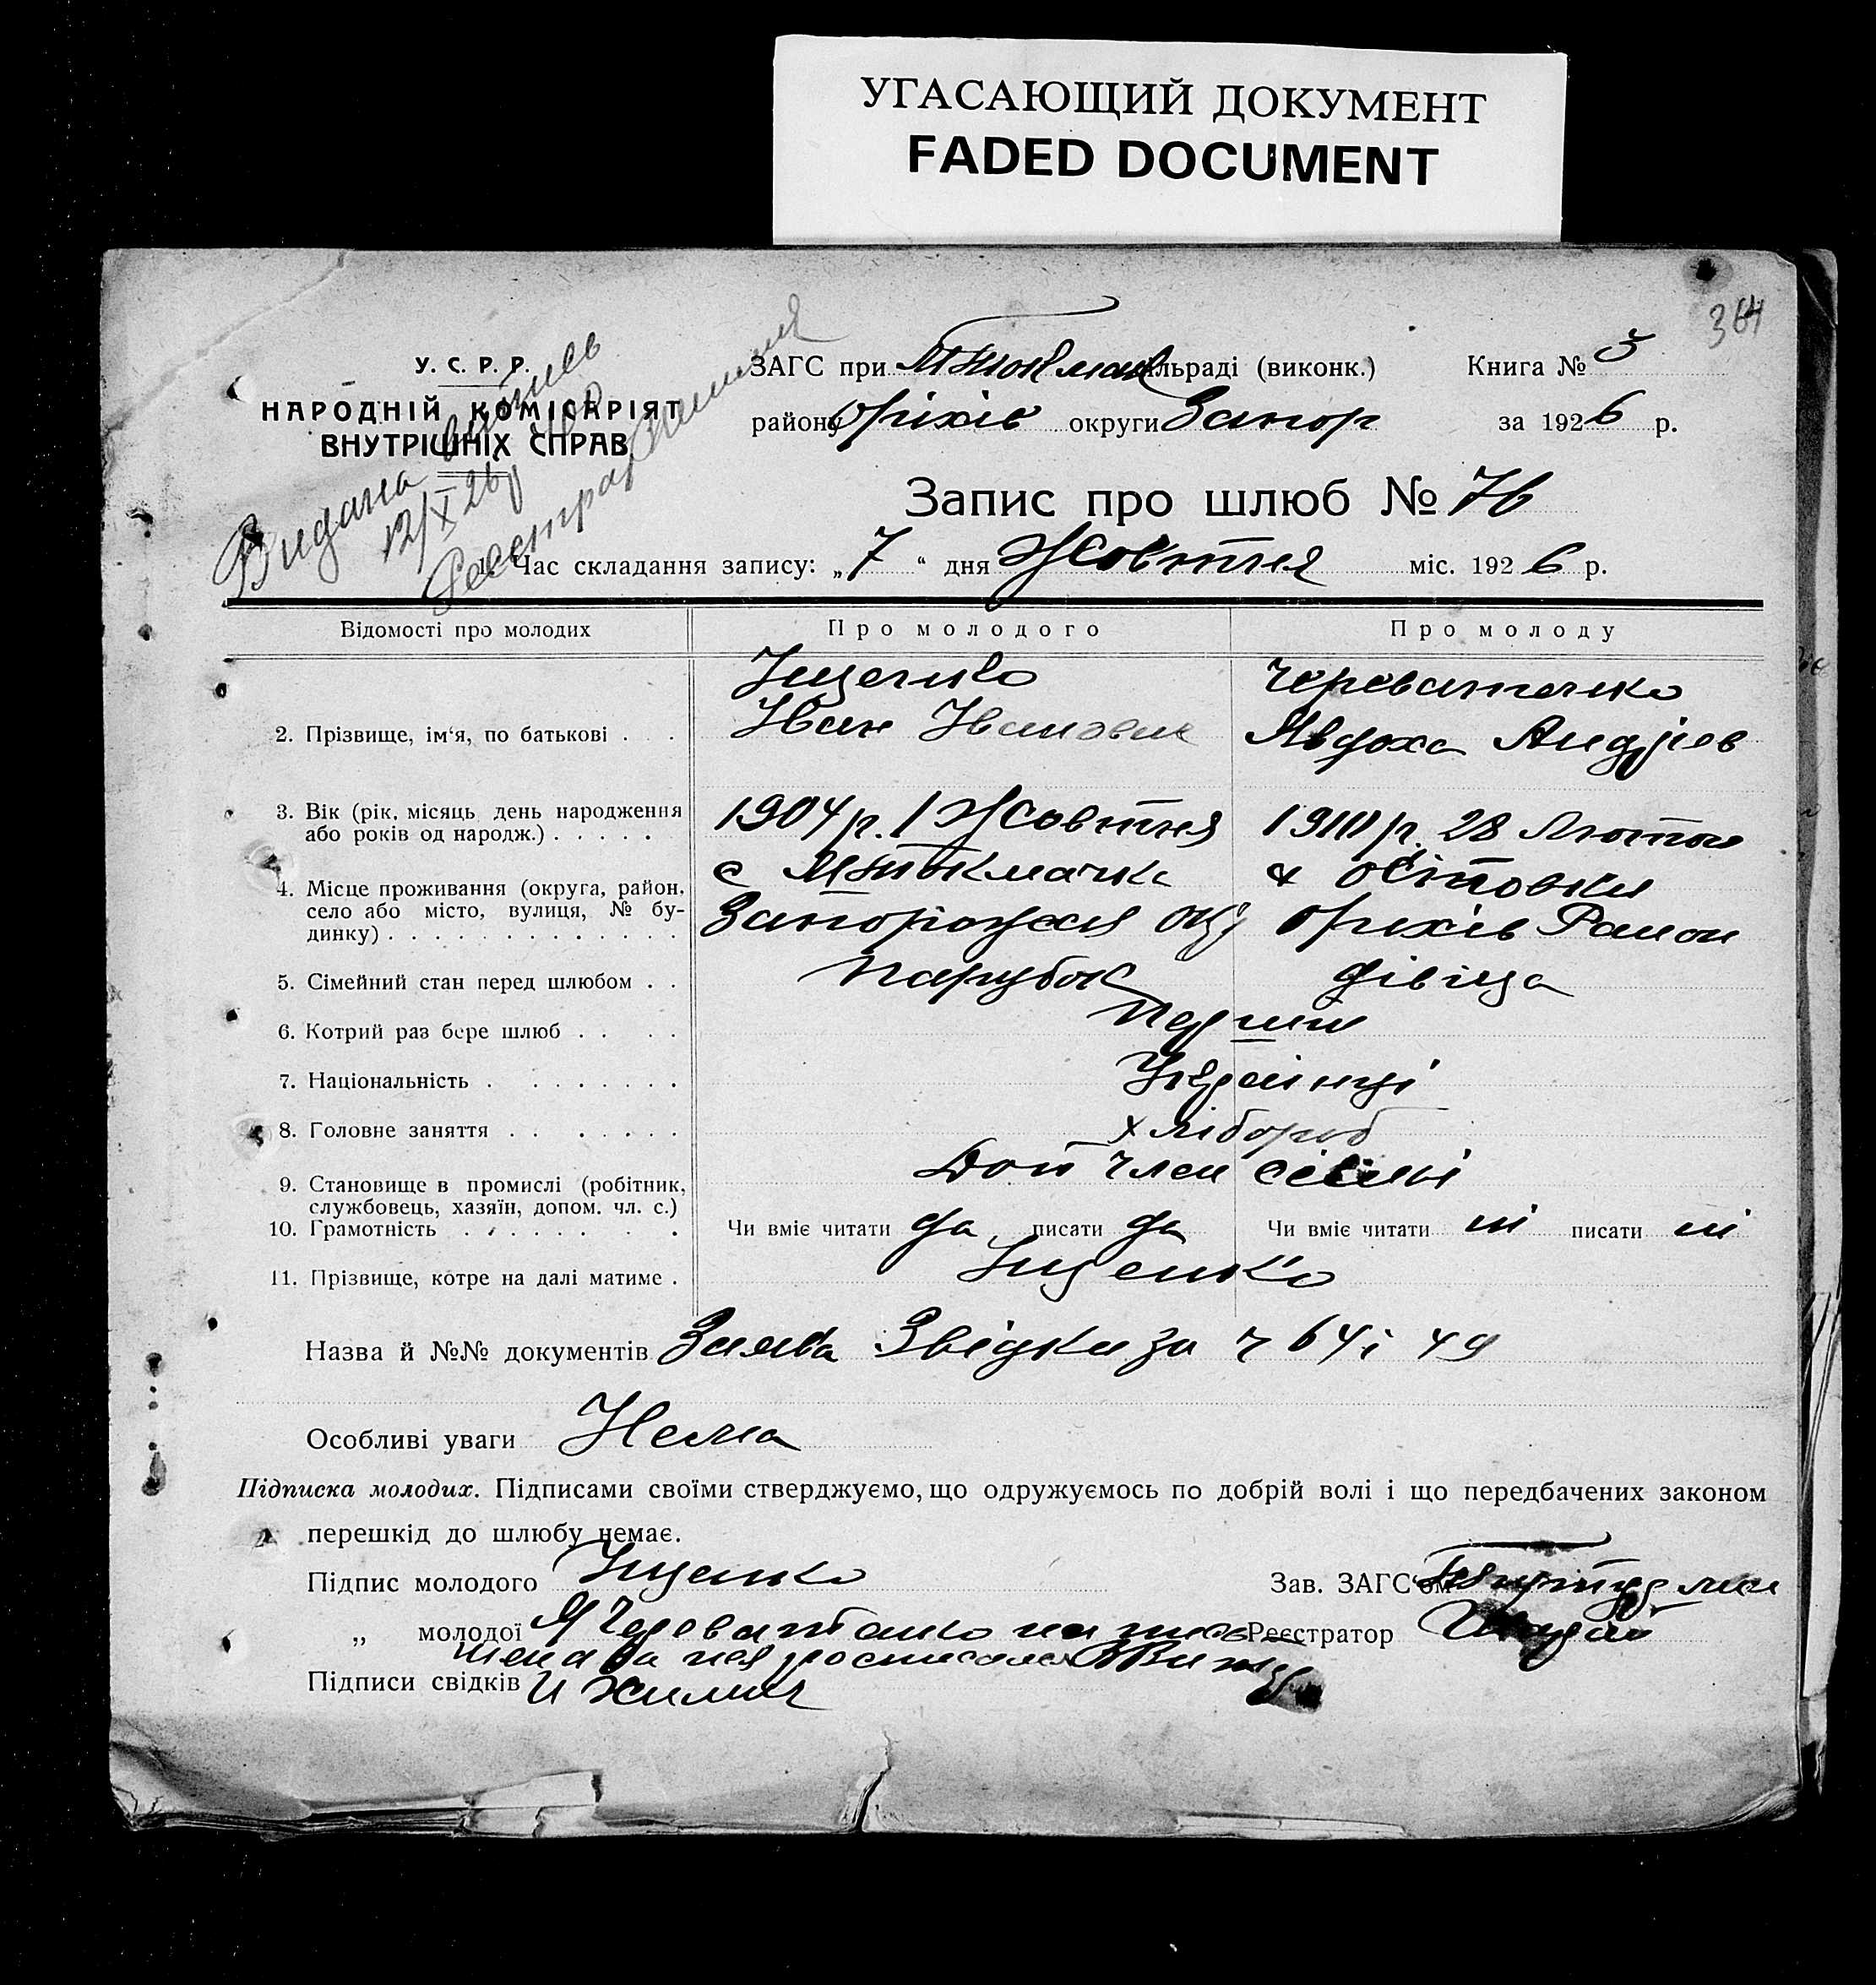 УГАСАЮЩИЙ ДОКУМЕНТ
FADED DOCUMENT
364
У. С. Р. Р.
НАРОДНІЙ КОМІСАРІЯТ
ВНУТРІШНІХ СПРАВ
Видана випись
12/X 26р
ЗАГС при М Токмач сільраді (виконк.) Книга №
району Оріхів округи Запор за 1926 р.
Запис про шлюб № 76
1. Час складання запису: „7“ дня Жовтня міс. 1926 р.
Відомості про молодих Про молодого Про молоду
Іщенко Череватенко
2. Прізвище, ім‘я, по батькові . . Іван Іванович Явдоха Андріев
3. Вік (рік, місяць день народження 1904 р. 1 Жовтня 28 Лютого
або років од народж.) . . . . .
4. Місце проживання (округа, район, с М Токмачка
село або місто, вулиця, № бу- Запоріжжя Оріхів Район
динку) . . . . . . . . . . . . .
5. Сімейний стан перед шлюбом . . Парубок дівиця
6. Котрий раз бере шлюб . . . . Перший
7. Національність . . . . . . . . Українці
8. Головне заняття . . . . . . . хлібороб
9. Становище в промислі (робітник, Доп член сімї
службовець, хазяїн, допом. чл. с.)
10. Грамотність . . . . . . . . Чи вміє читати да писати да Чи вміє читати ні писати ні
11. Прізвище, котре на далі матиме . Іщенко
Назва й №№ документів Заява Звідки за ч 64 і 49
Особливі уваги Нема
Підписка молодих. Підписами своїми стверджуємо, що одружуємось по добрій волі і що передбачених законом
перешкід до шлюбу немає.
Підпис молодого Іщенко Зав. ЗАГС‘ом
„ молодої Череватенко Реєстратор
Підписи свідків